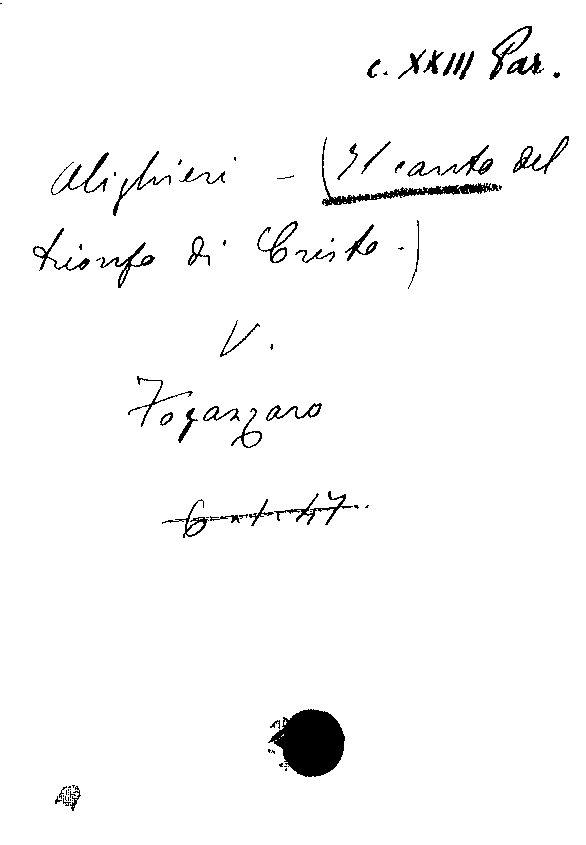 c. XXIII Par.
Alighieri - (Il canto del
trionfo di Cristo.)
V.
Fogazzaro